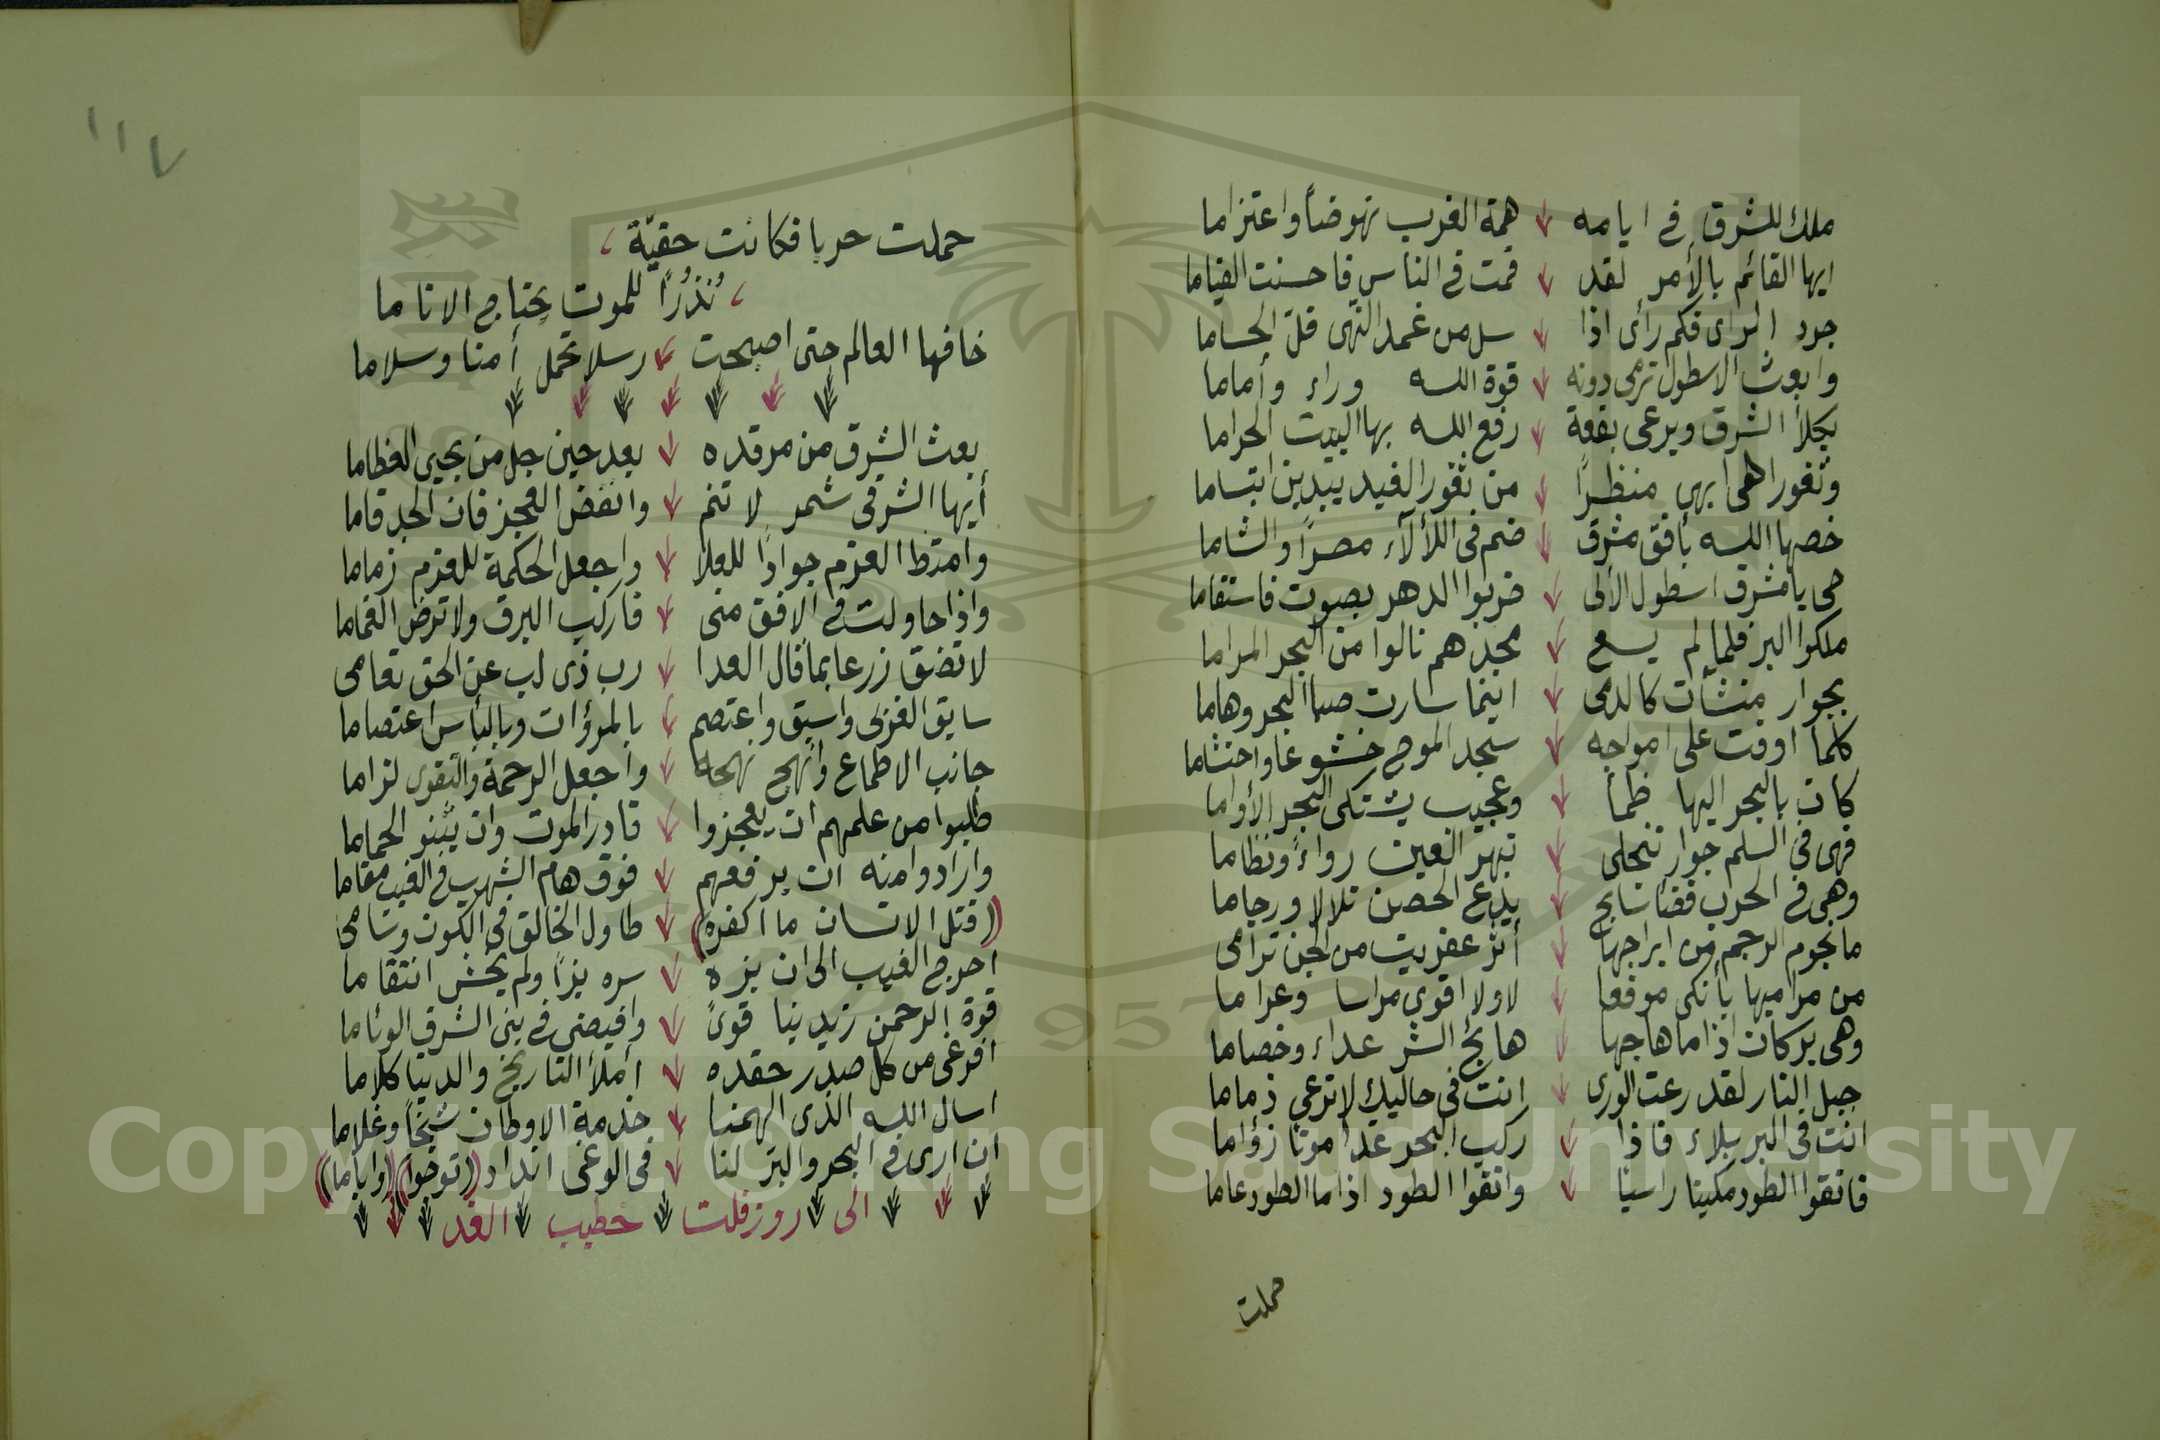 ملك للشرق في ايامه همة الغرب نهوضاً واعتزاما
ايها القائم بالأمر لقد قمت في الناس فاحسنت القياما
جرد الرأى فكم رأى اذا سل من غمد النهى فلّ الحساما
وابعث الاسطول ترمى دونه قوة الله وراء وأماما
يكلأ الشرق ويرعى بقعة رفع الله بها البيت الحراما
وثغورا هى ابهى منظراً من ثغور الغيد يبدين ابتساما
خصها الله بأفق مشرق ضم فى اللألآء مصراً والشاما
حى يا مشرق اسطول الألى ضربوا الدهر بصوت فاستقاما
ملكوا البر فلما لم يسع مجدهم نالوا من البحر المراما
بجوار منشآت كالدمى اينما سارت صبا البحر وهاما
كلما اوفت على امواجه سجد الموج خشوعا واحتشاما
كان بالبحر اليها ظمأ وعجيب يشتكى البحر الأواما
فهى في السلم جوار تنجلى تبهر العين رواءً ونظاما
وهى فى الحرب قضآ سابح يدع الحصن تلالا ورجاما
ما نجوم الرجم من ابراجها أثر عفريت من الجن ترامى
من مراميها بأنكى موقعا لا ولا اقوى مراسا وعراما
وهى بركان اذا ما هاجها هائج الشر عداء وخصاما
جبل النار لقد رعت الورى انت فى حاليك لا ترعى ذماما
انت فى البر بلاء فاذا ركب البحر غدا موتا زؤاما
فاتقوا الطود مكينا راسيا واتقوا الطود اذا ما الطود عاما
حملت
١١٧
حملت حربا فكانت حقبّة
نُذُرًا للموت يجتاح الاناما
خافها العالم حتى اصبحت رسلا تحمل أمنا وسلاما
بعث الشرق من مرقده بعد حين جل من يحيى العظاما
أيها الشرقى شمر لا تنم وانفض العجز فان الجد قاما
وامتط العزم جوادًا للعلا واجعل الحكمة للعزم زماما
واذا حاولت فى الافق منى فاركب البرق ولا ترض الغماما
لا تضق زرعا بما قال العدا رب ذى لب عن الحق تعامى
سابق الغربى واسبق واعتصم بالمرؤات وبالبأس اعتصاما
جانب الاطماع وانهج نهجه واجعل الرحمة والتقوى لزاما
طلبوا من علمهم ان يعجزوا قادر الموت وان يثنو الحماما
وارادوا منه ان يرفعهم فوق هام الشهب فى الغيب مقاما
((قتل الانسان ما اكفره)) طاول الخالق فى الكون وسامى
احرج الغيب الى ان بزه سره بزاً ولم يخش انتقاما
قوة الرحمن زيدينا قوىً وافيضى فى بنى الشرق الوئاما
افرغى من كل صدر حقده أملأ التاريخ والدنيا كلاما
اسال الله الذى الهمنا خدمة الاوطان شيخاً وغلاما
ان ارى فى البحر والبر لنا فى الوغى انداد ((توجوا)) ((واياما))
الى روزفلت خطيب الغد